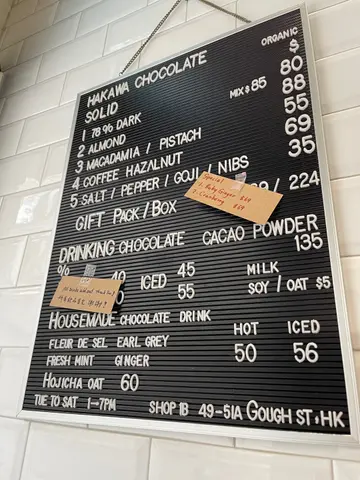 HAKAWA CHOCOLATE ORGANIC
SOLID $
1 78% DARK 80
2 ALMOND MIX $85 88
3 MACADAMIA / PISTACH 55
4 COFFEE HAZ/LNUT 69
5 SALT / PEPPER / GOJI / NIBS 35
GIFT PACK/BOX / 224
Special
1. Baby Ginger $69
2. Cranberry $69
DRINKING CHOCOLATE CACAO POWDER
135
% 40 ICED 45 MILK
55 SOY / OAT $5
HOUSEMADE CHOCOLATE DRINK
HOT ICED
FLEUR DE SEL EARL GREY
50 56
FRESH MINT GINGER
HOJICHA OAT 60
TUE TO SAT 1→7PM SHOP 1B 49-51A GOUGH ST, HK